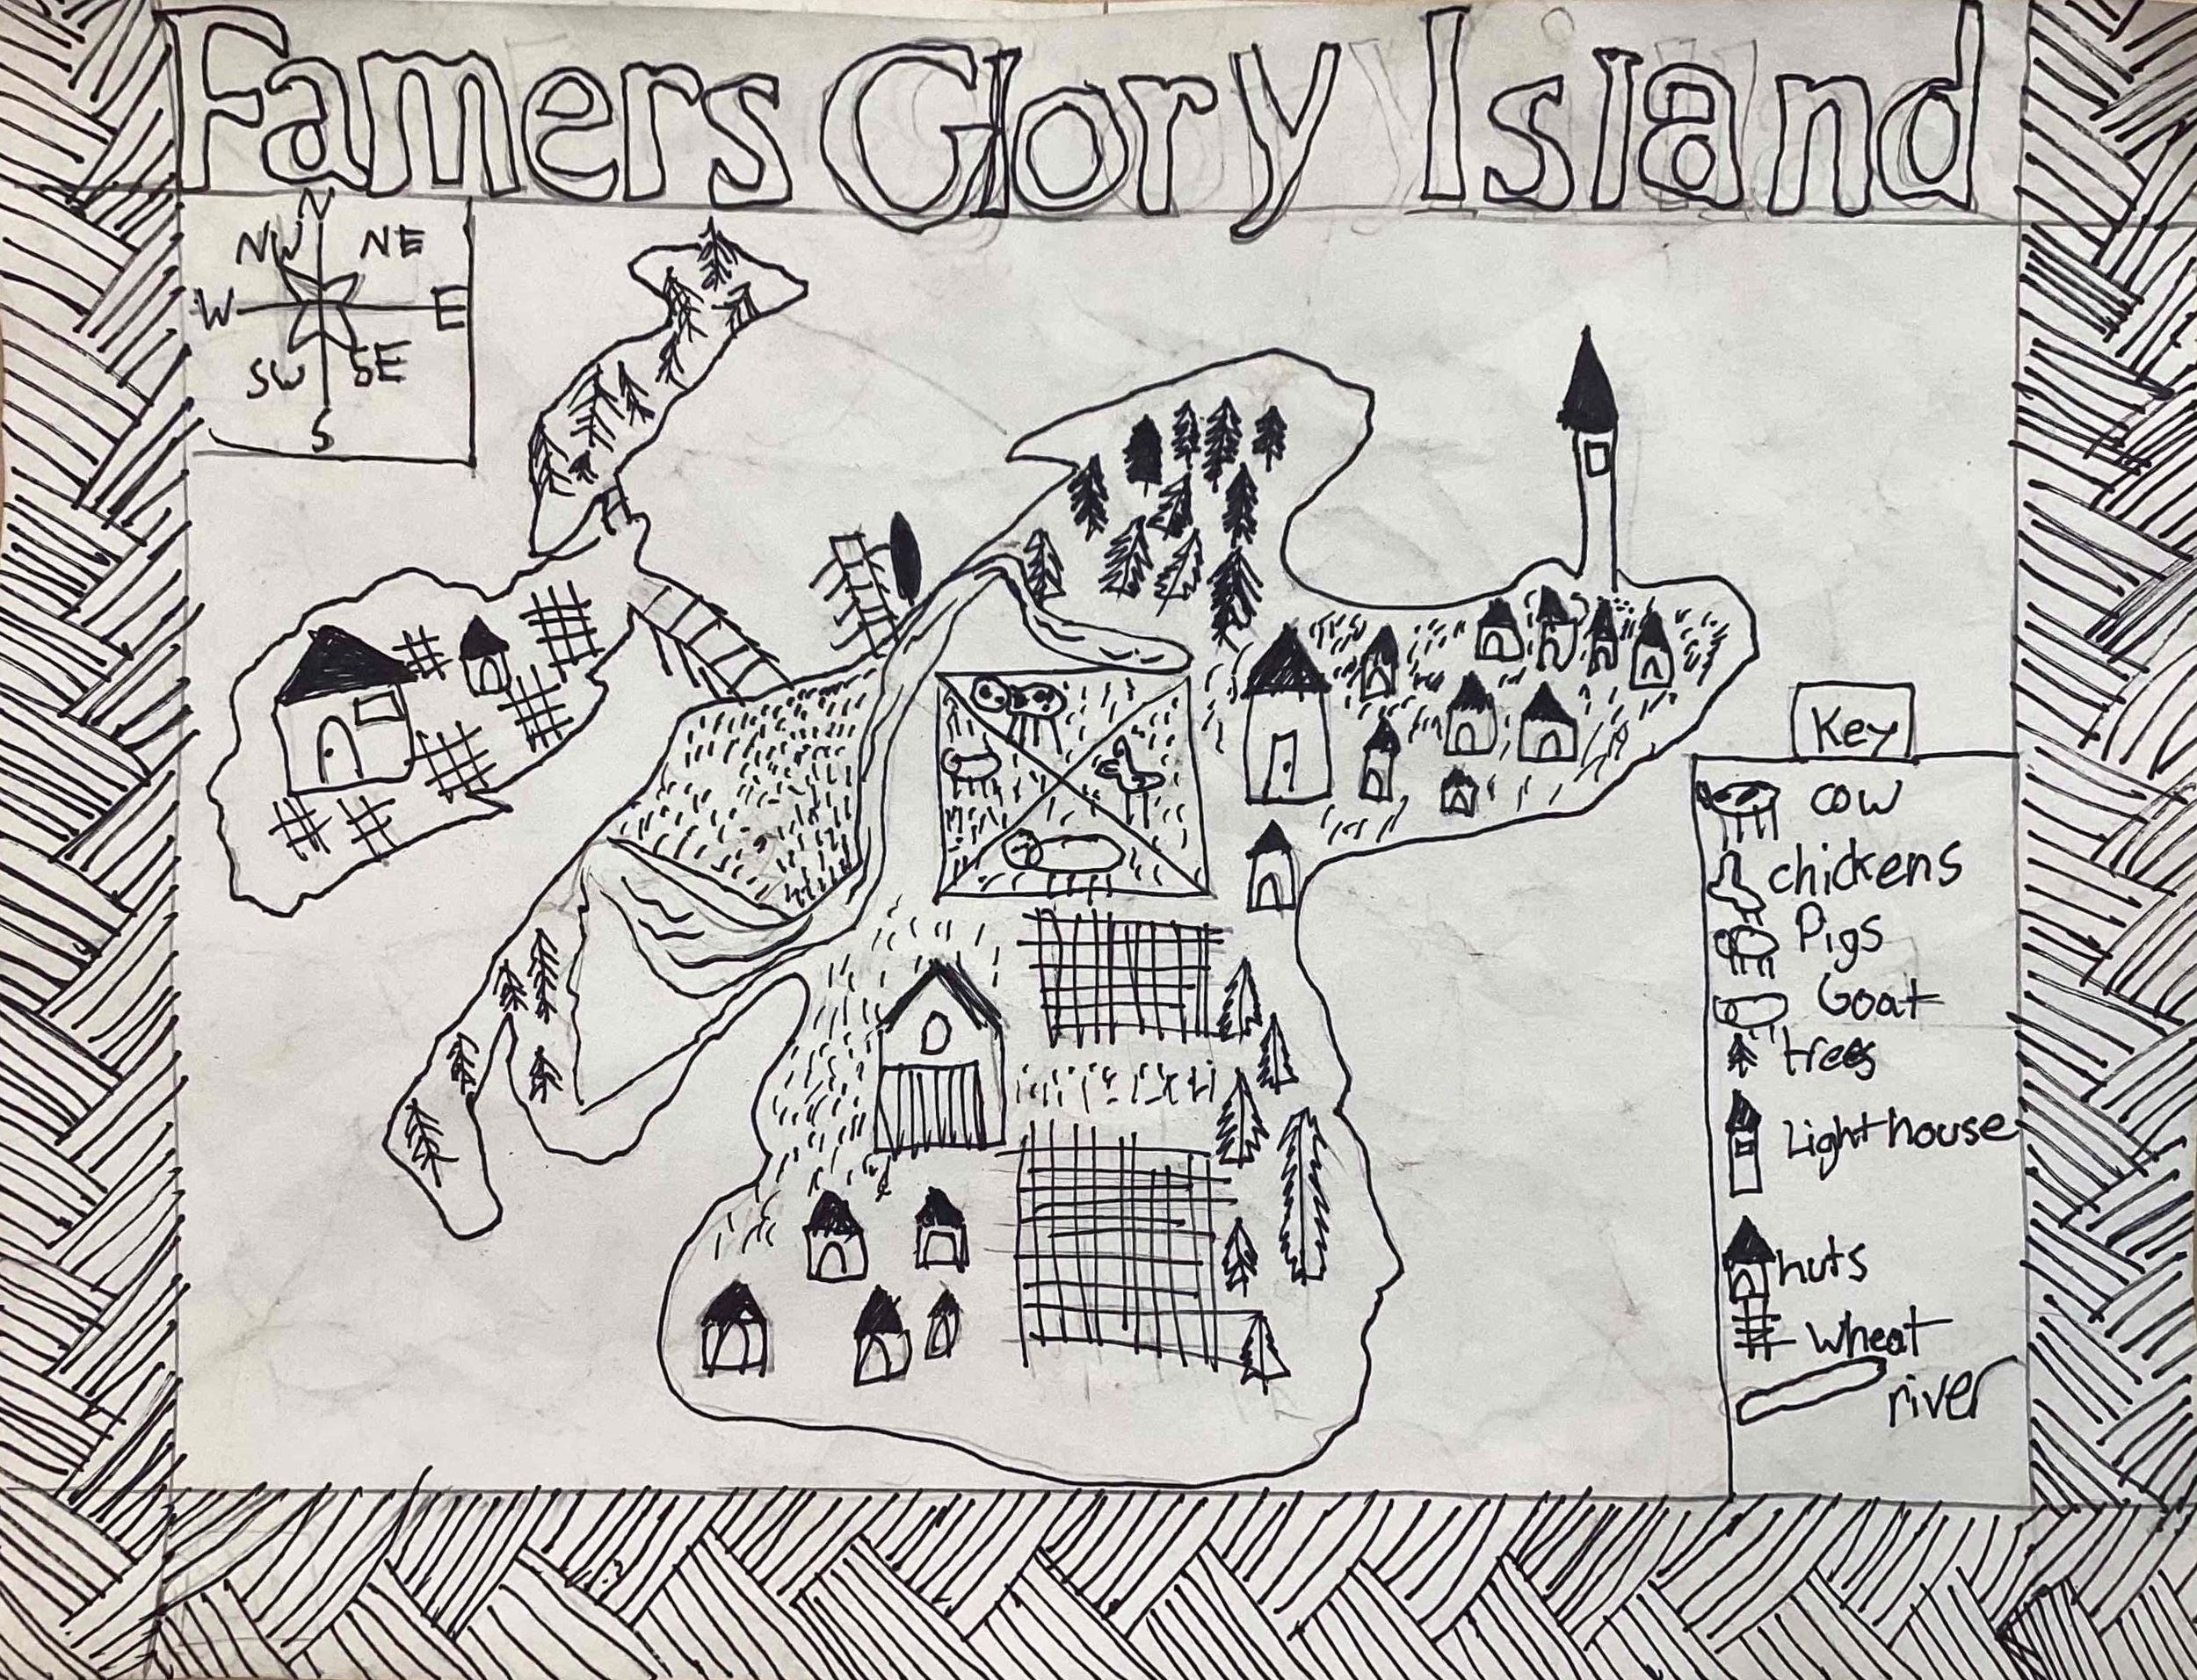 Famers Glory Island
N
NW NE
W E
SW SE
S
Key
cow
chickens
Pigs
Goat
trees
Lighthouse
huts
wheat
river